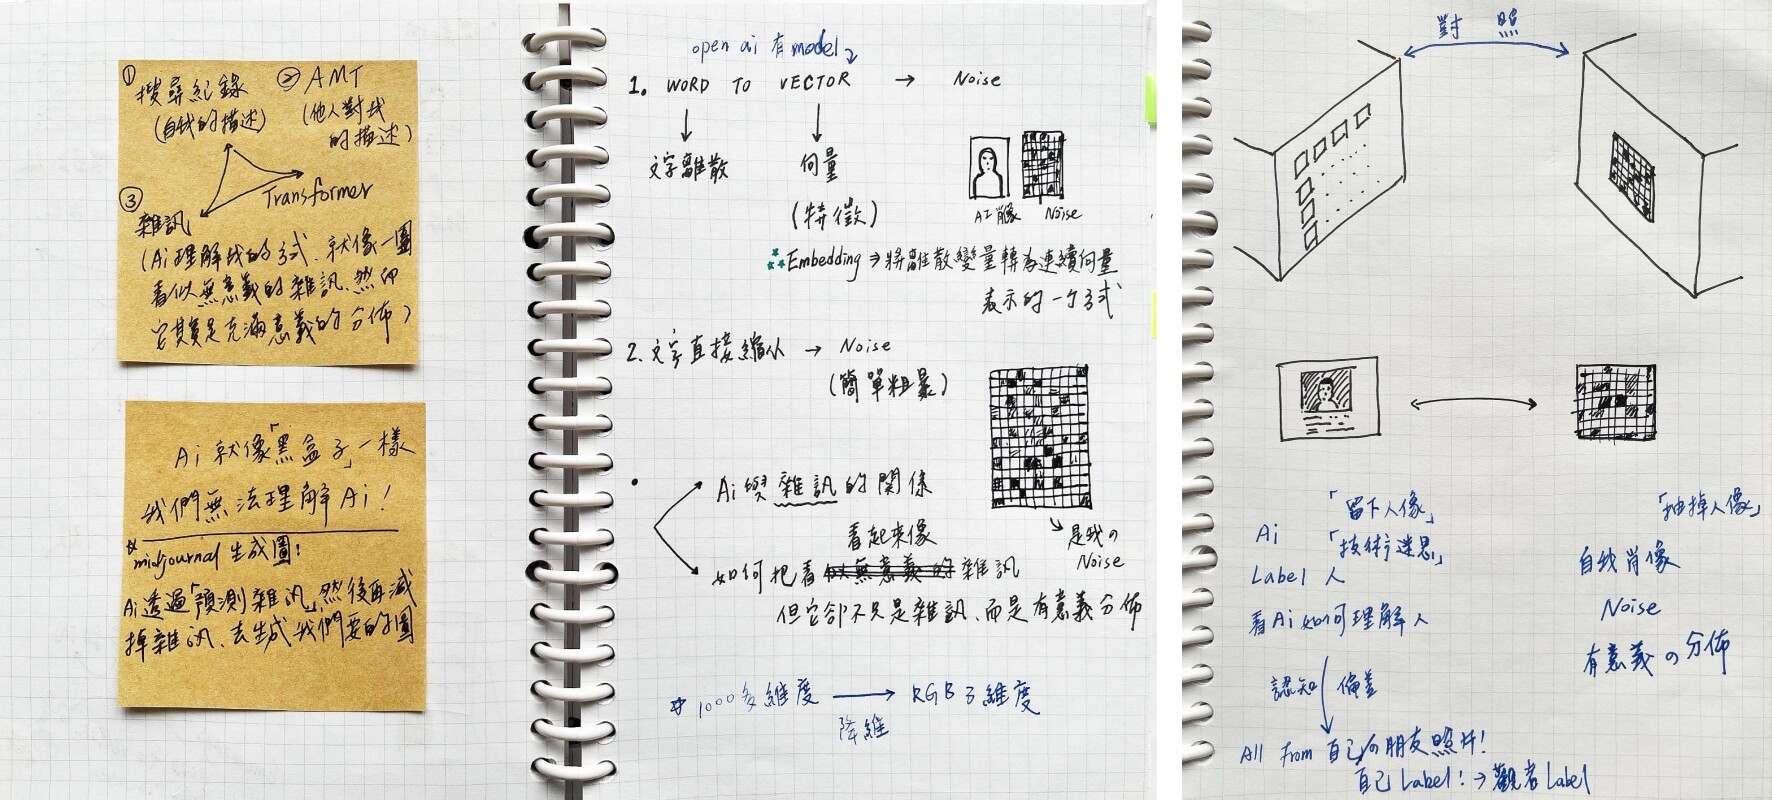 ① 搜尋紀錄
(自我的描述)
② AMT
(他人對我
的描述)
Transformer
③ 雜訊
(Ai理解我的方式、就像一團
看似無意義的雜訊、然即
它其實是充滿意義的分佈)
Ai 就像「黑盒子」一樣
我們無法理解Ai!
midjournal 生成圖:
Ai透過「預測雜訊」然後再減
掉雜訊、去生成我們要的圖
open ai 有model
1. WORD TO VECTOR → Noise
文字離散
向量
(特徵)
AI肖像
Noise
Embedding ⇒ 將離散變量轉為連續向量
表示的一個方式
2. 文字直接縮小 → Noise
(簡單粗暴)
Ai與雜訊的關係
看起來像
如何把看似無意義的雜訊
但它卻不只是雜訊、而是有意義分佈
是我の
Noise
1000多維度 → RGB 3維度
降維
對照
「留下人像」
Ai 「技術迷思」
Label 人
看Ai如何理解人
認知偏差
All from 自己の朋友照片!
自己Label! → 觀者Label
「抽掉人像」
自我肖像
Noise
有意義の分佈